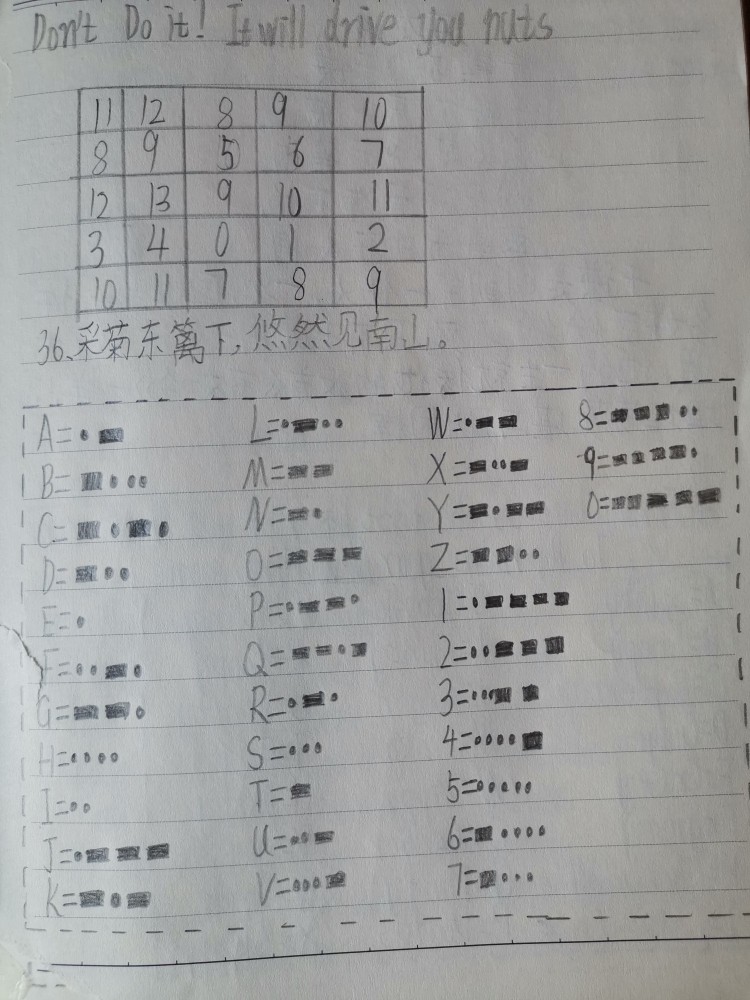 Don't Do it! It will drive you nuts
11 12 8 9 10
8 9 5 6 7
12 13 9 10 11
3 4 0 1 2
10 11 7 8 9
36、采菊东篱下,悠然见南山。
A=•▬ L=•▬•• W=•▬▬ 8=▬▬▬••
B=▬••• M=▬▬ X=▬••▬ 9=▬▬▬▬•
C=▬•▬• N=▬• Y=▬•▬▬ 0=▬▬▬▬▬
D=▬•• O=▬▬▬ Z=▬▬••
E=• P=•▬▬• 1=•▬▬▬▬
F=••▬• Q=▬▬•▬ 2=••▬▬▬
G=▬▬• R=•▬• 3=•••▬▬
H=•••• S=••• 4=••••▬
I=•• T=▬ 5=•••••
J=•▬▬▬ U=••▬ 6=▬••••
K=▬•▬ V=•••▬ 7=▬•••